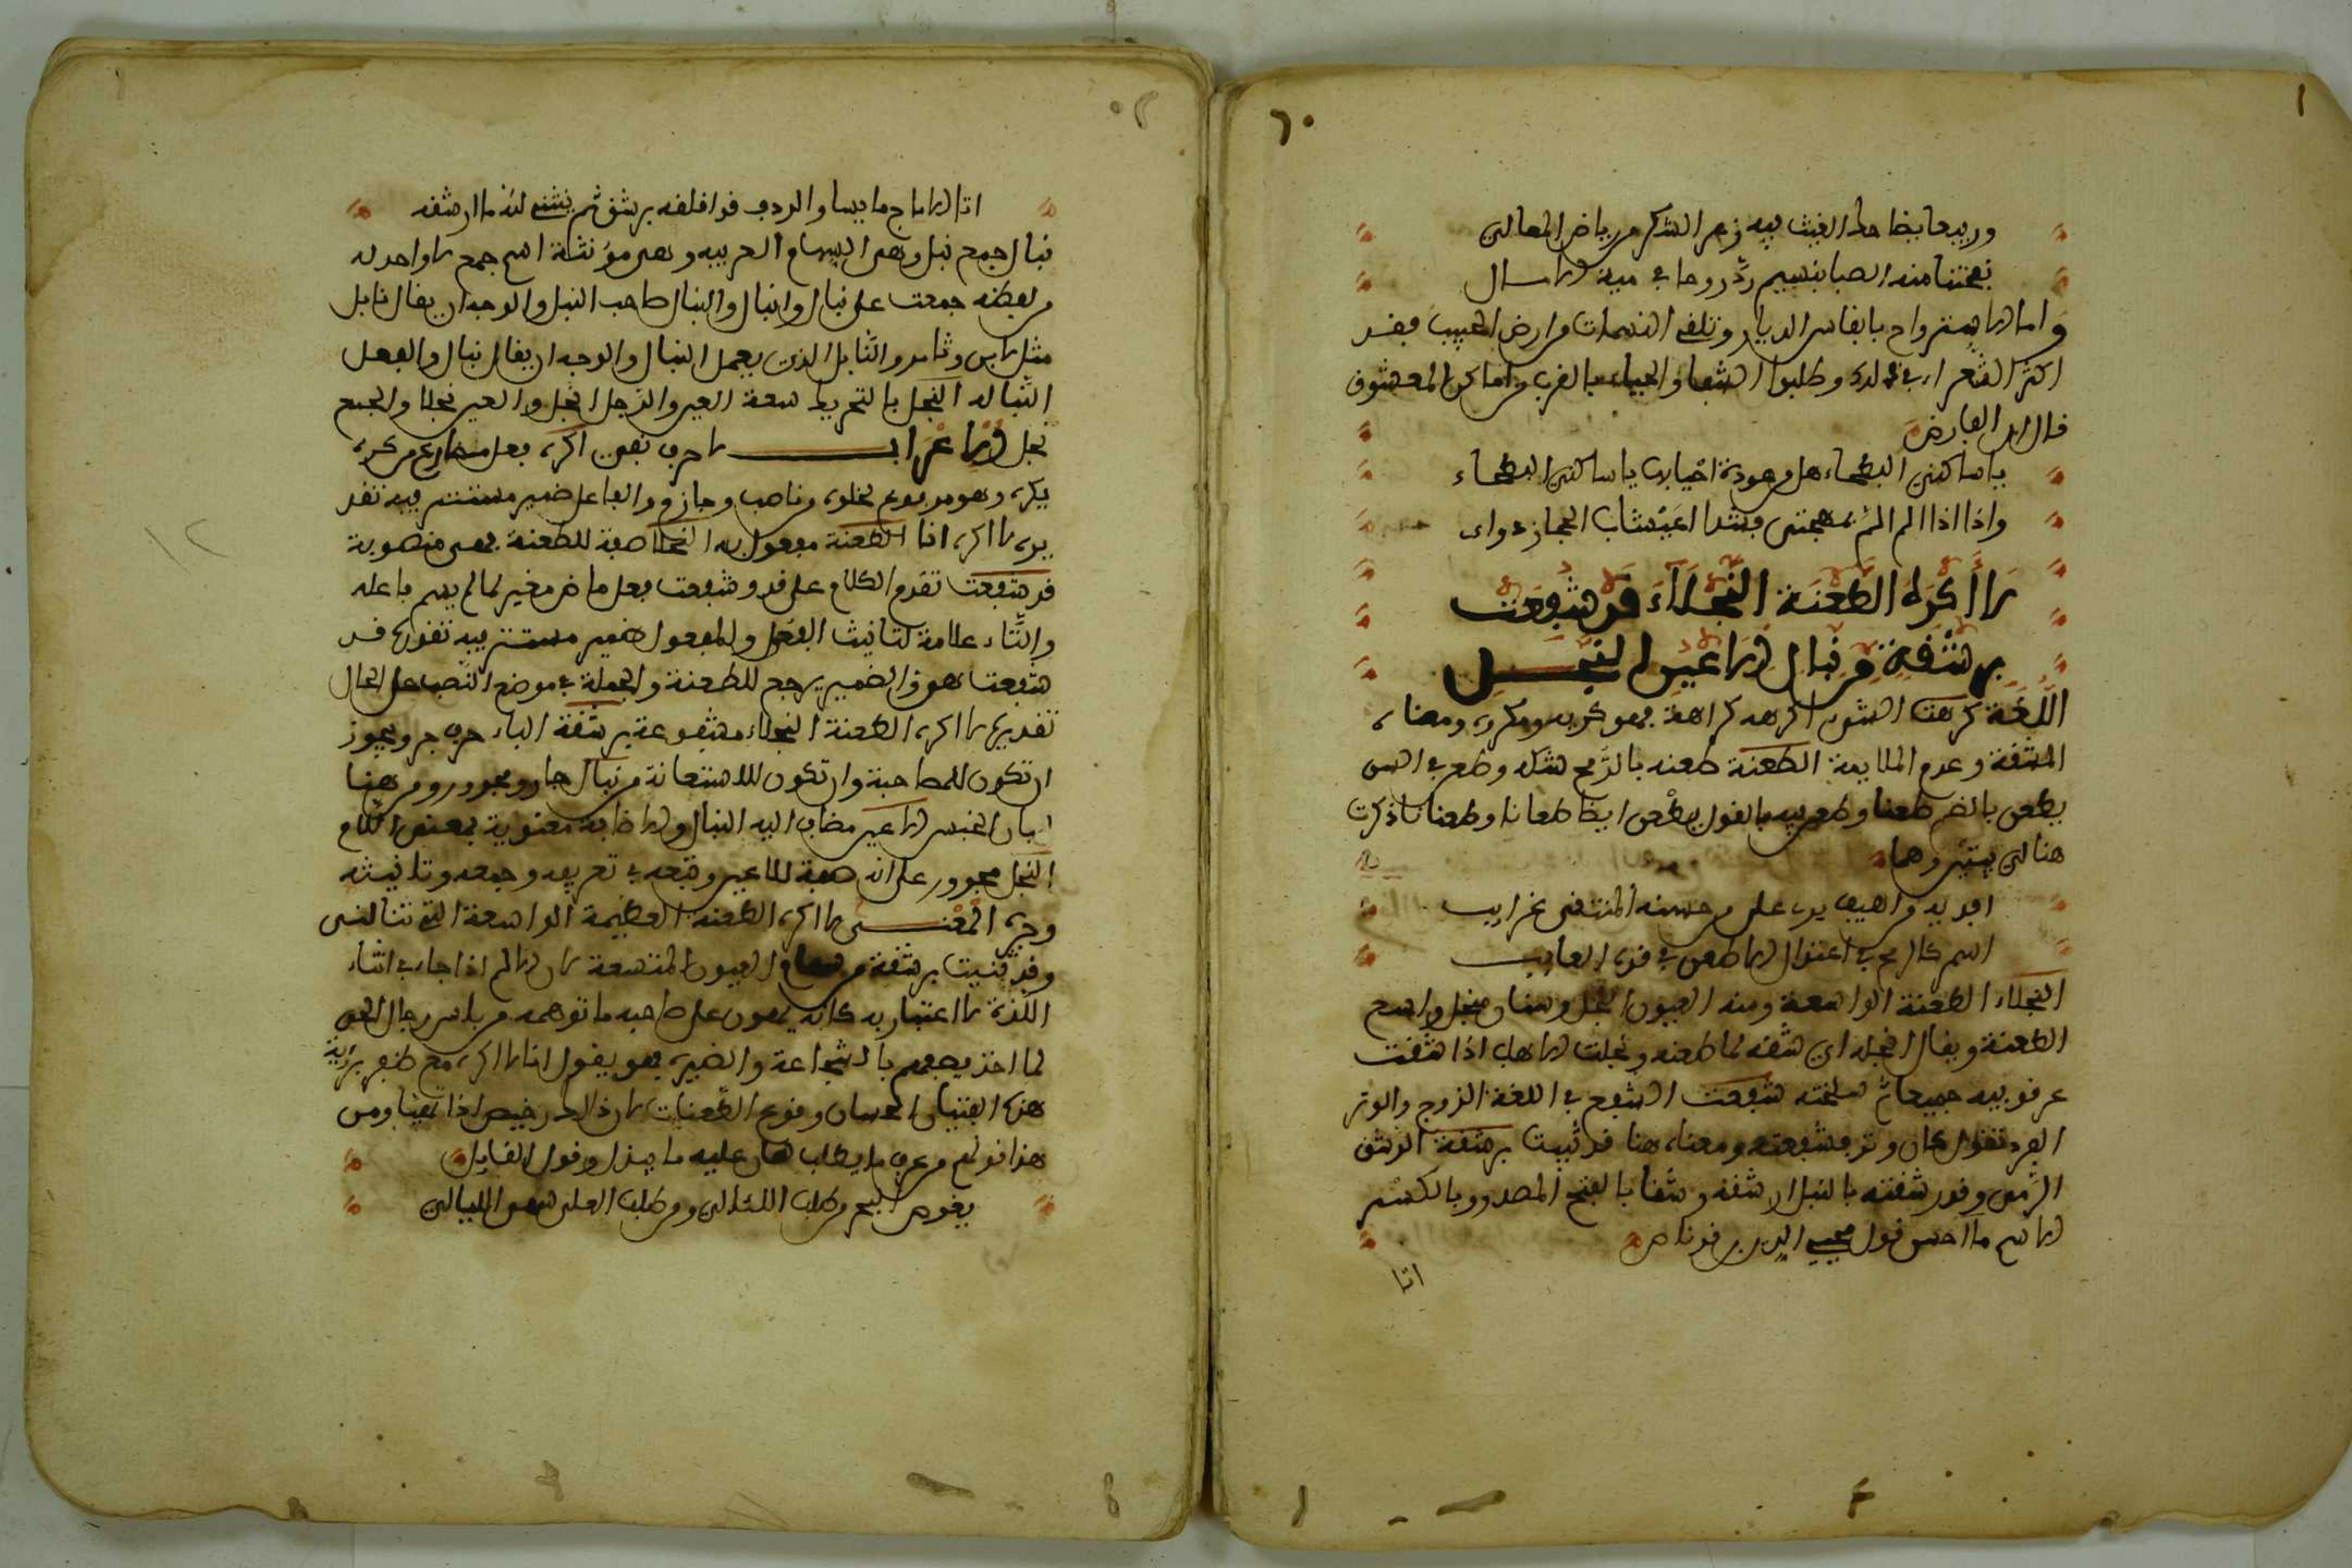 وربيعا يضاحك الغيث فيه زهر الشكر من رياض المعالي
نفحتنا منه الصبا بنسيم رد روحا في ميت
واما الاسترواح بانفاس الديار وتلقي النسمات من ارض الحبيب فقد
اكثر الشعراء في ذلك وطلبوا الشفا والحياة بالقرب من اماكن المعشوق
قال ابن الفارض
يا ساكني البطحاء هل من عودة احيا بها يا ساكني البطحاء
واذا اذا الم الم بمهجتي فشذا اعيشاب الحجاز دواء
لا أكره الطعنة النجلاء قد شفعت
برشقة من نبال الاعين النجل
اللغة كرهت الشيء اكرهه كراهة فهو كريه ومكروه ومعناه
المشقة وعدم الملايمة الطعنة طعنه بالرمح شكه وطعن في السن
يطعن بالضم طعنا وطعن فيه بالقول يطعن ايضا طعانا وطعنا ذكرت
هنا لي بيتين وهما
افديه من اهيف يدب على من حسنه المنتقى غرايب
اسمر كالرمح في اعتدال لا طعن في قده العايب
النجلاء الطعنة الواسعة ومنه العيون النجل وسنان منجل واسع
الطعنة ويقال انجله اي شقه لما طعنه ونجلت الاهاب اذا شققت
عرقوبيه جميعا ثم سلخته شفعت الشفع في اللغة الزوج والوتر
الفرد تقول كان وتر فشفعته ومعناه هنا قد ثنيت برشقة الرشق
الرمي وقد رشقته بالنبل ارشقه رشقا بالفتح المصدر وبالكسر
الاسم ما احسن قول مجير الدين بن
انا
نبال جمع نبل وهي السهام العربية وهي مؤنثة اسم جمع لا واحد له
من لفظه جمعت على نبال وانبال والنبال صاحب النبل والوجه ان يقال نابل
مثل لابن وتامر والنابل الذي يعمل النبال والوجه ان يقال نبال والفعل
النبالة النجل بالتحريك سعة العين والرجل انجل والعين نجلا والجمع
نجل الاعراب لا حرف نفي اكره فعل مضارع من كره
يكره وهو مرفوع لخلوه من ناصب وجازم والفاعل ضمير مستتر فيه تقد
يره لا اكره انا الطعنة مفعول به النجلا صفة للطعنة فهي منصوبة
قد شفعت تقدم الكلام على قد وشفعت فعل ماض مغير لما لم يسم فاعله
والتاء علامة لتانيث الفعل والمفعول ضمير مستتر فيه تقديره قد
شفعت هو والضمير يرجع للطعنة والجملة في موضع النصب على الحال
تقديره لا اكره الطعنة النجلاء مشفوعة برشقة الباء حرف جر ويجوز
ان تكون للمصاحبة وان تكون للاستعانة من نبال جار ومجرور ومن هنا
لبيان الجنس الاعين مضاف اليه النبال والاضافة معنوية بمعنى اللام
النجل مجرور على انه صفة للاعين وتبعه في تعريفه وجمعه وتانيثه
وجره المعنى لا اكره الطعنة العظيمة الواسعة التي تنالني
وقد ثنيت برشقة من سهام العيون المتسعة لان الالم اذا جاء في اثناء
اللذة لا اعتبار به كانه يهون على صاحبه ما توهمه من باس رجال الحي
لما اخذ يصفهم بالشجاعة والغيرة فهو يقول انا لا اكره مع ظفري برؤية
هذه الفتيات الحسان وقوع الطعنات لان ذلك رخيص اذا لقينا ومن
هذا قولهم من عرف ما يطلب هان عليه ما يبذل وقول القايل
يغوص البحر من طلب اللئالي ومن طلب العلى سهر الليالي